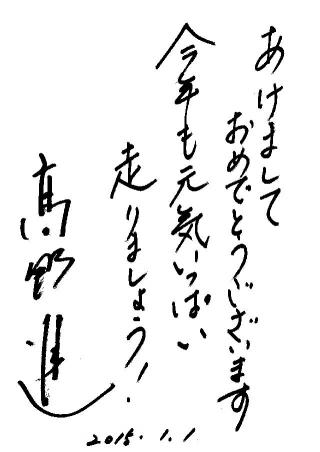 あけまして
おめでとうございます
今年も元気いっぱい
走りましょう!
髙野進
2015.1.1